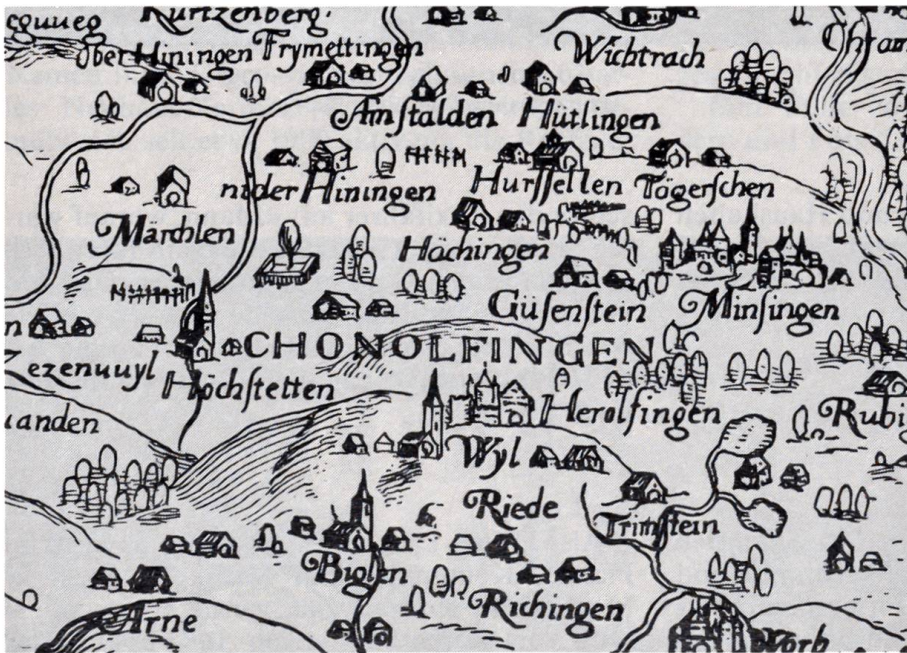 Kurtzenberg.
Ober Hiningen Frymettingen
Wichtrach
Amstalden Hütlingen
nider Hiningen Hurſſellen Tägerſchen
Märchlen
Höchingen
Güſenſtein Minſingen
CHONOLFINGEN
ezenuuyl
Höchſtetten
Herolfingen
Rubi
uanden
Wyl
Riede
Trimſtein
Biglen
Richingen
Arne
Worb